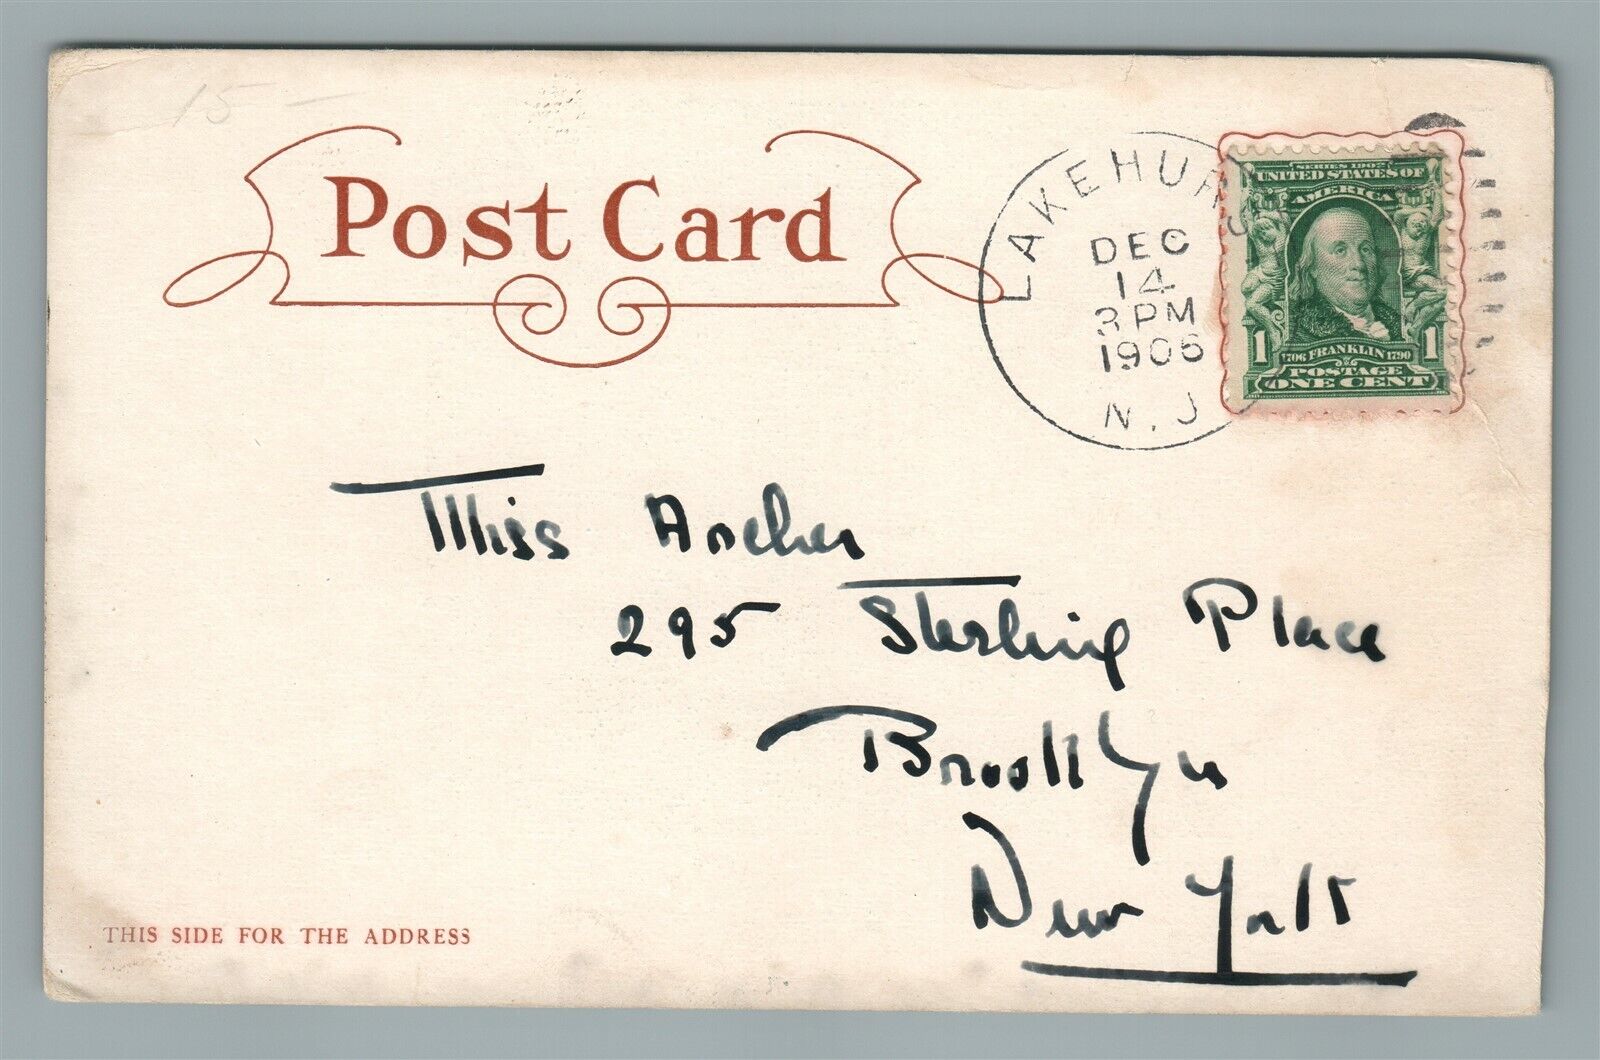 15 —
Post Card
LAKEHURS
DEC
14
3 PM
1906
N.J
SERIES 1902
UNITED STATES OF
AMERICA
1 1706 FRANKLIN 1790 1
POSTAGE
ONE CENT
Miss Archer
295 Sterling Place
Brooklyn
New York
THIS SIDE FOR THE ADDRESS